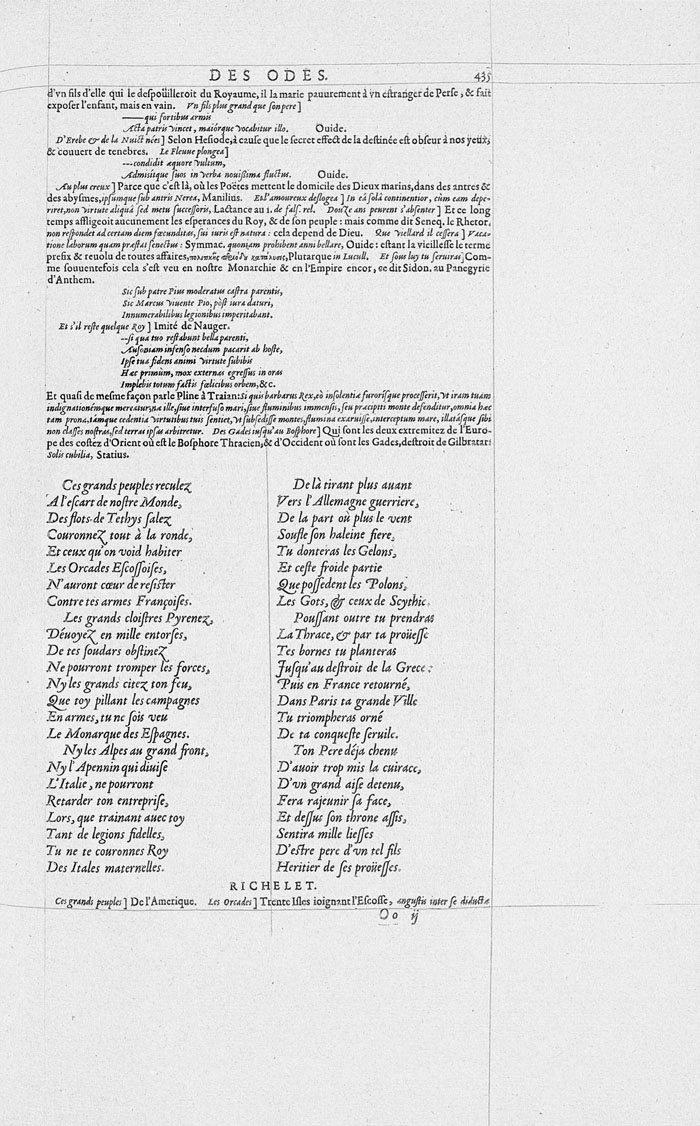 DES ODES. 435
d'vn fils d'elle qui le despoüilleroit du Royaume, il la marie pauurement à vn estranger de Perse, & fait
exposer l'enfant, mais en vain. Vn fils plus grand que son pere]
——qui fortibus armis
Acta patris vincet, maiórque vocabitur illo. Ouide.
D'Erebe & de la Nuict nées] Selon Hesiode, à cause que le secret effect de la destinée est obscur à nos yeux,
& couuert de tenebres. Le Fleuue plongea]
---condidit æquore vultum,
Admisitque suos in verba nouissima fluctus. Ouide.
Au plus creux] Parce que c'est là, où les Poëtes mettent le domicile des Dieux marins, dans des antres &
des abysmes, ipsumque sub antris Nerea, Manilius. Et l'amoureux deslogea] In eâ solâ continentior, cùm eam depe-
riret, non virtute aliquâ sed metu successoris, Lactance au 1. de fals. rel. Douze ans peurent s'absenter] Et ce long
temps affligeoit aucunement les esperances du Roy, & de son peuple: mais comme dit Seneq. le Rhetor,
non respondet ad certam diem fœcunditas, sui iuris est natura: cela depend de Dieu. Que viellard il cessera] Vaca-
tione laborum quam præstat senectus: Symmac. quoniam prohibent anni bellare, Ouide: estant la vieillesse le terme
prefix & reuolu de toutes affaires, Plutarque in Lucull. Et sous luy seruiras] Com-
me souuentefois cela s'est veu en nostre Monarchie & en l'Empire encor, ce dit Sidon. au Panegyric
d'Anthem.
Sic sub patre Pius moderatus castra parentis,
Sic Marcus viuente Pio, pòst iura daturi,
Innumerabilibus legionibus imperitabant.
Et s'il reste quelque Roy] Imité de Nauger.
--si qua tuo restabunt bella parenti,
Ausoniam infenso necdum pacarit ab hoste,
Ipse tua fidens animi virtute subibis
Hac primùm, mox externas egressus in oras
Implebis totum factis fœlicibus orbem, &c.
Et quasi de mesme façon parle Pline à Traian: Si quis barbarus Rex, eò insolentiæ furorisque processerit, vt iram tuam
indignationémque mereatur, næ ille, siue interfuso mari, siue fluminibus immensis, seu præcipiti monte defenditur, omnia hæc
tam prona, támque cedentia virtutibus tuis sentiet, vt subsedisse montes, flumina exaruisse, interceptum mare, illatásque sibi
non classes nostras, sed terras ipsas arbitretur. Des Gades iusqu'au Bosphore] Qui sont les deux extremitez de l'Euro-
pe des costez d'Orient où est le Bosphore Thracien, & d'Occident où sont les Gades, destroit de Gilbratar:
Solis cubilia, Statius.
Ces grands peuples reculez
A l'escart de nostre Monde,
Des flots de Tethys salez
Couronnez tout à la ronde,
Et ceux qu'on void habiter
Les Orcades Escossoises,
N'auront cœur de resister
Contre tes armes Françoises.
Les grands cloistres Pyrenez,
Déuoyez en mille entorses,
De tes soudars obstinez
Ne pourront tromper les forces,
Ny les grands citez ton feu,
Que toy pillant les campagnes
En armes, tu ne sois veu
Le Monarque des Espagnes.
Ny les Alpes au grand front,
Ny l'Apennin qui diuise
L'Italie, ne pourront
Retarder ton entreprise,
Lors, que trainant auec toy
Tant de legions fidelles,
Tu ne te couronnes Roy
Des Itales maternelles.
De là tirant plus auant
Vers l'Allemagne guerriere,
De la part où plus le vent
Soufle son haleine fiere,
Tu donteras les Gelons,
Et ceste froide partie
Que possedent les Polons,
Les Gots, & ceux de Scythie.
Poussant outre tu prendras
La Thrace, & par ta proüesse
Tes bornes tu planteras
Jusqu'au destroit de la Grece:
Puis en France retourné,
Dans Paris ta grande Ville
Tu triompheras orné
De ta conqueste seruile.
Ton Pere déja chenu
D'auoir trop mis la cuirace,
D'vn grand aise detenu,
Fera rajeunir sa face,
Et dessus son throne assis,
Sentira mille liesses
D'estre pere d'vn tel fils
Heritier de ses proüesses.
RICHELET.
Ces grands peuples] De l'Amerique. Les Orcades] Trente Isles ioignant l'Escosse, angustis inter se diductæ
Oo ij